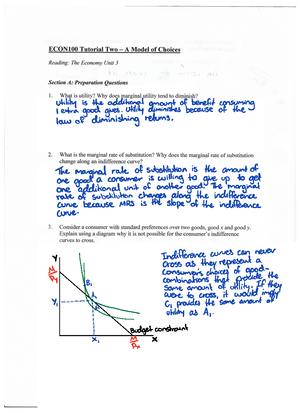 ECON100 Tutorial Two – A Model of Choices
Reading: The Economy Unit 3
Section A: Preparation Questions
1. What is utility? Why does marginal utility tend to diminish?
Utility is the additional amount of benefit consuming
1 extra good gives. Utility diminishes because of the
law of diminishing returns.
2. What is the marginal rate of substitution? Why does the marginal rate of substitution
change along an indifference curve?
The marginal rate of substitution is the amount of
one good a consumer is willing to give up to get
one additional unit of another good. The marginal
rate of substitution changes along the indifference
curve because MRS is the slope of the indifference
curve.
3. Consider a consumer with standard preferences over two goods, good x and good y.
Explain using a diagram why it is not possible for the consumer's indifference
curves to cross.
Indifference curves can never
cross as they represent a
consumer's choices of good-
combinations that provide the
same amount of utility. If they
were to cross, it would imply
C₁ provides the same amount of
utility as A₁.
Y
M
Py
B₁
A₁
Y₁
Budget constraint
X₁
M
Px
X